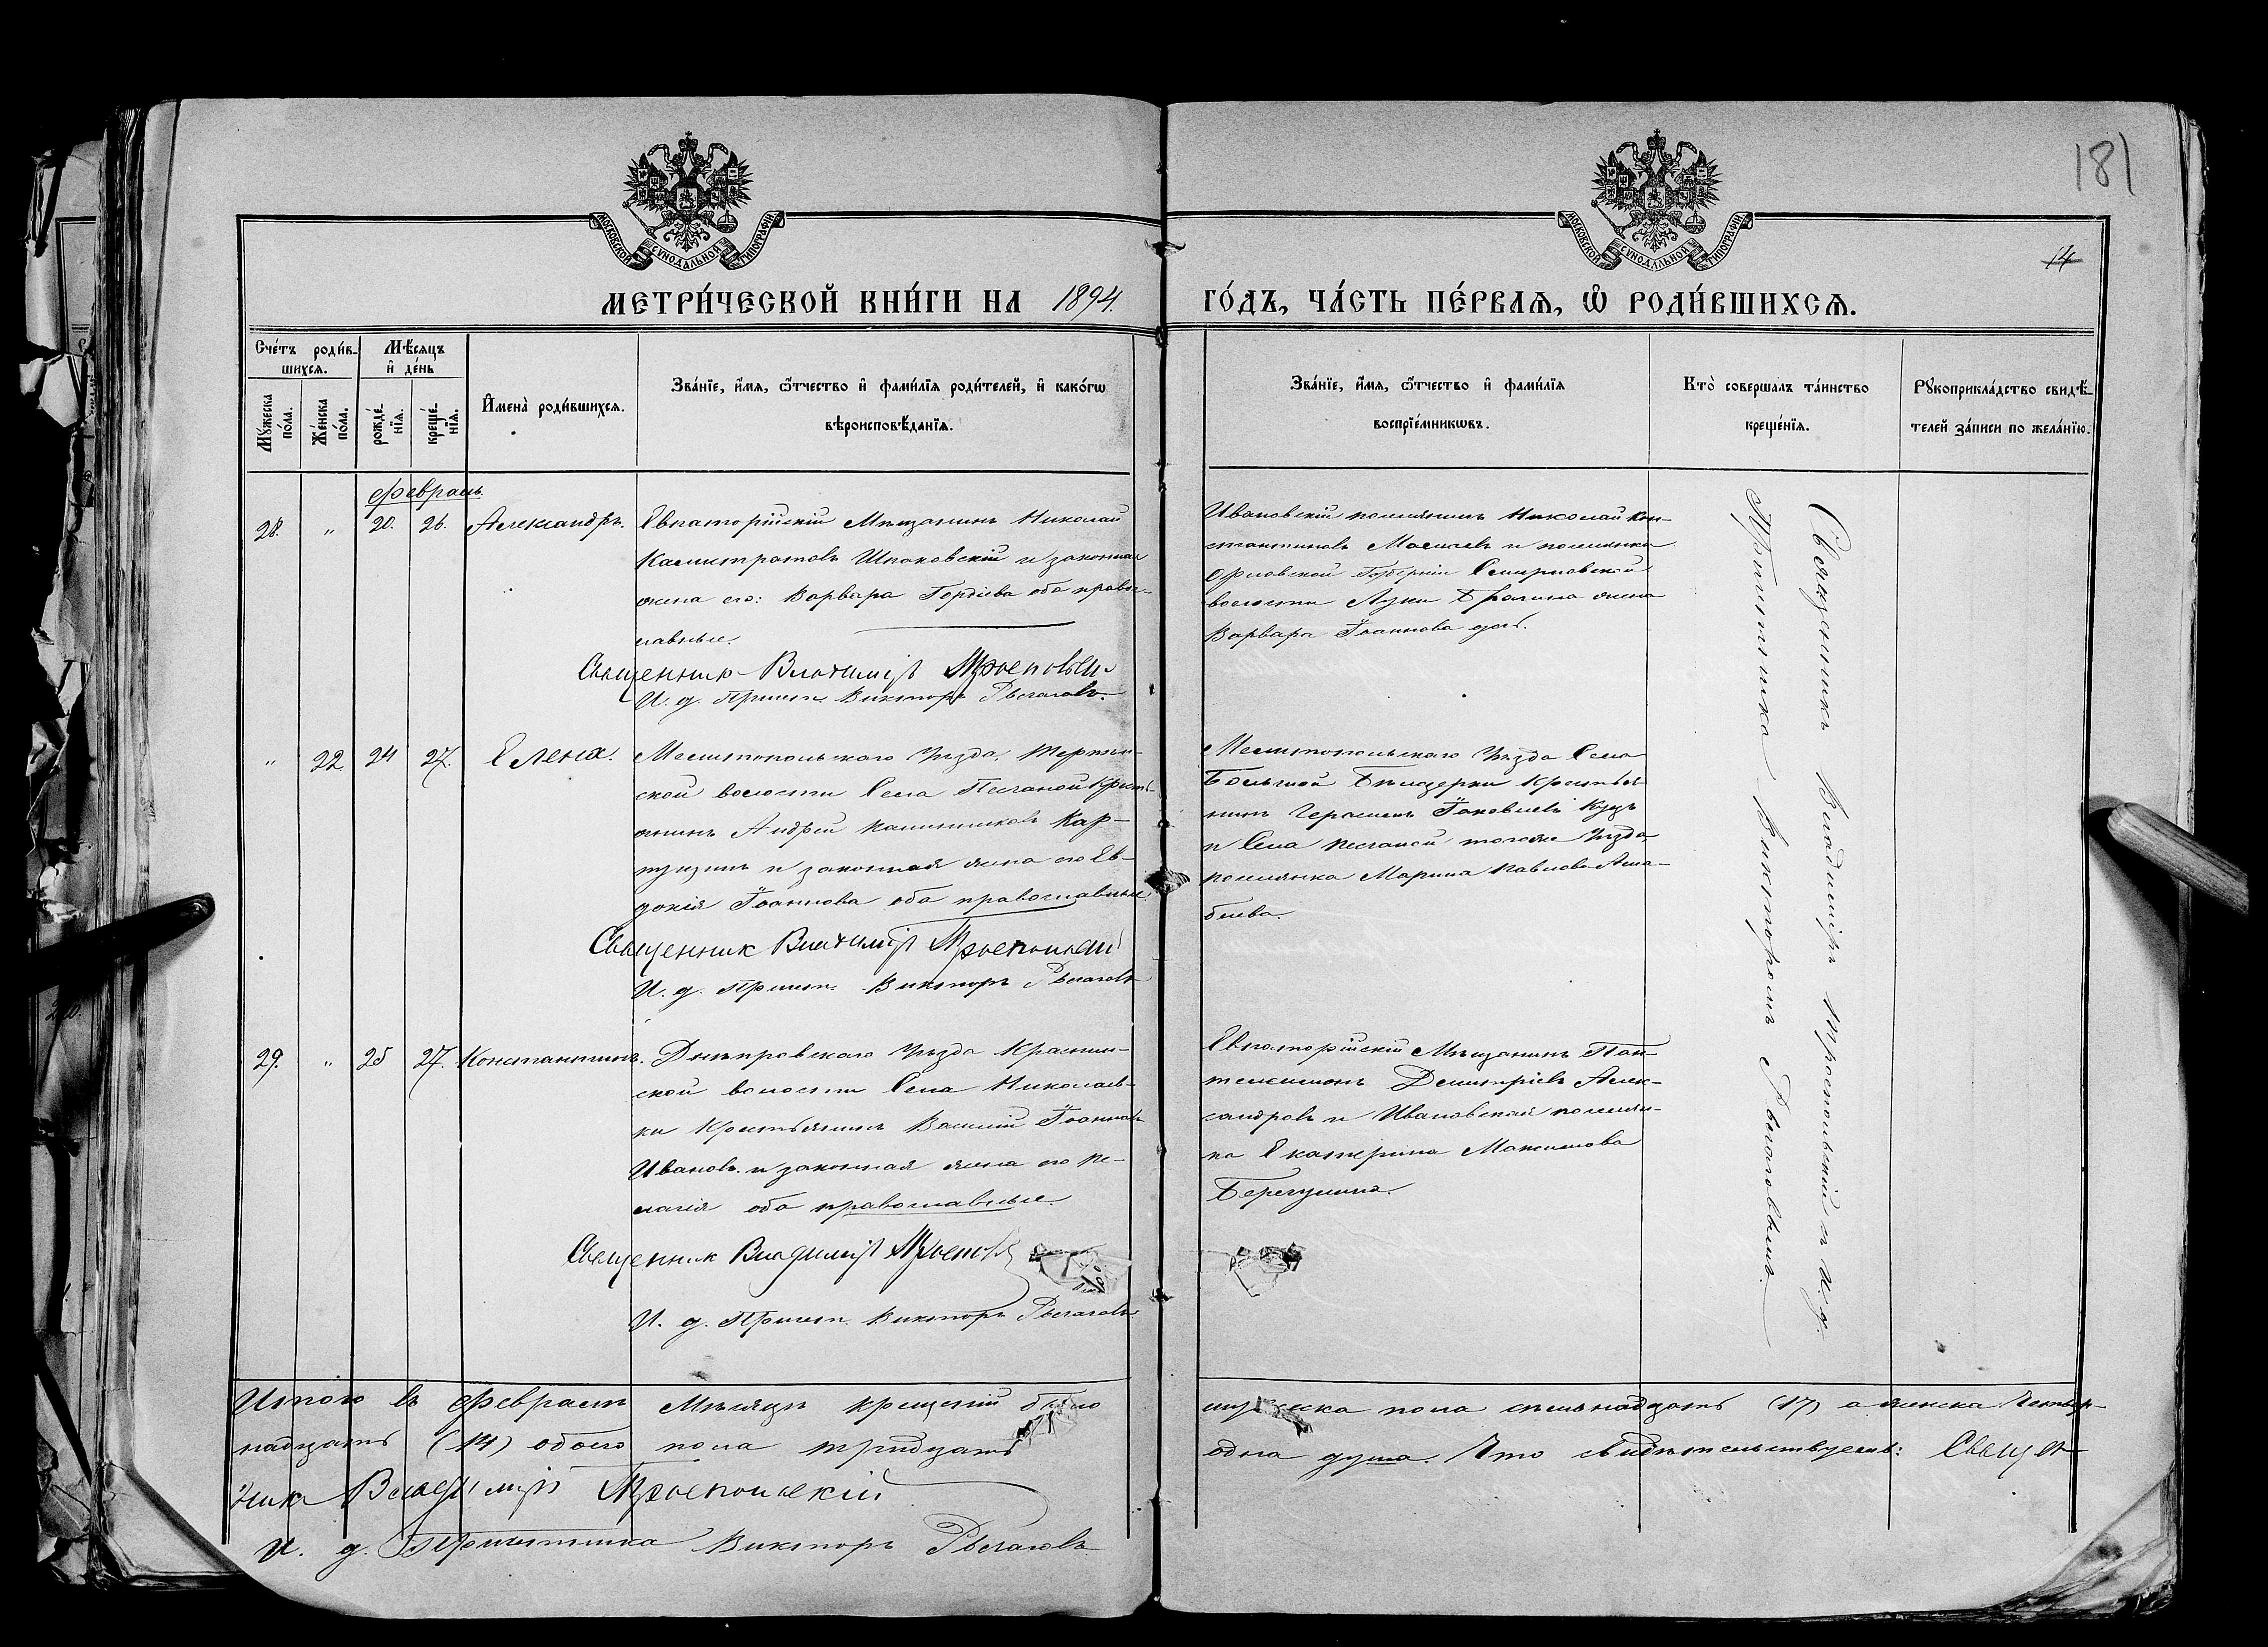 181
14
МОСКОВСКОЙ СѴНОДАЛЬНОЙ ТИПОГРАФІИ
МОСКОВСКОЙ СѴНОДАЛЬНОЙ ТИПОГРАФІИ
МЕТРИ́ЧЕСКОЙ КНИ́ГИ НА 1894. ГО́ДЪ, ЧА́СТЬ ПЕ́РВАѦ, Ѽ РОДИ́ВШИХСѦ.
Сче́тъ роди́в-
шихсѧ.
Мꙋ́жеска по́ла.
Же́нска по́ла.
Мѣ́сѧцъ и҆ де́нь
рожде́-нїѧ.
креще́-нїѧ.
И҆мена̀ роди́вшихсѧ.
Зва́нїе, и҆́мѧ, ѻ҆́тчество и҆ фами́лїѧ роди́телей, и҆ како́гѡ
вѣроисповѣ́данїѧ.
Зва́нїе, и҆́мѧ, ѻ҆́тчество и҆ фами́лїѧ
воспрїе́мникѡвъ.
Кто̀ соверша́лъ та́инство
креще́нїѧ.
Рꙋкоприкла́дство свидѣ́-
телей за́писи по жела́нїю.
Февраль.
28. " 20. 26. Александръ.
Евпаторійскій Мѣщанинъ Николай
Калистратовъ и законная
жена его: Варвара Гордіева оба право-
славные.
Священникъ Владиміръ Троепольскій
И. д. Причетн. Викторъ Рычаговъ.
Ивановскій поселянинъ Николай Кон-
стантиновъ и поселянка
Орловской Губерніи
волости Луки Фролина жена
Варвара Іоаннова дочь.
" 22. 24 27. Елена.
Мелитопольскаго Уѣзда,
ской волости Села Песчаной Крестья-
нинъ Андрей Кар-
пузинъ и законная жена его Ев-
докія Іоаннова оба православные.
Священникъ Владиміръ Троепольскій
И. д. Причетн. Викторъ Рычаговъ
Мелитопольскаго Уѣзда Села
Большой Бѣлозерки Крестья-
нинъ Герасимъ Іаковлевъ Куцъ
и Села Песчаной тогоже Уѣзда,
поселянка Марина Павлова Ала-
бьева.
29. " 25 27. Константинъ.
Днѣпровскаго Уѣзда
ской волости Села Николаев-
ки Крестьянинъ Василій Іоанновъ
Ивановъ и законная жена его Пе-
лагія оба православные.
Священникъ Владиміръ Троепольск
И. д. Причетн. Викторъ Рычаговъ.
Евпаторійскій Мѣщанинъ Пан-
телеимонъ Димитріевъ Алек-
сандровъ и Ивановская поселян-
ка Екатерина Максимова
Священникъ Владиміръ Троепольскій и И. д.
Причетника Викторомъ Рычаговымъ.
Итого въ Февралѣ Мѣсяцѣ крещеній было мужеска пола семьнадцать (17) а женска Четыр-
надцать (14) обоего пола тридцать одна душа. Что свидѣтельствуемъ: Священ-
никъ Владиміръ Троепольскій
И. д. Причетника Викторъ Рычаговъ